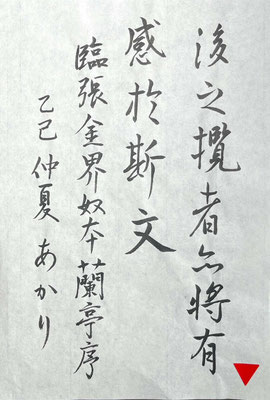 後之攬者亦將有
感於斯文
臨張金界奴本蘭亭序
乙巳仲夏あかり